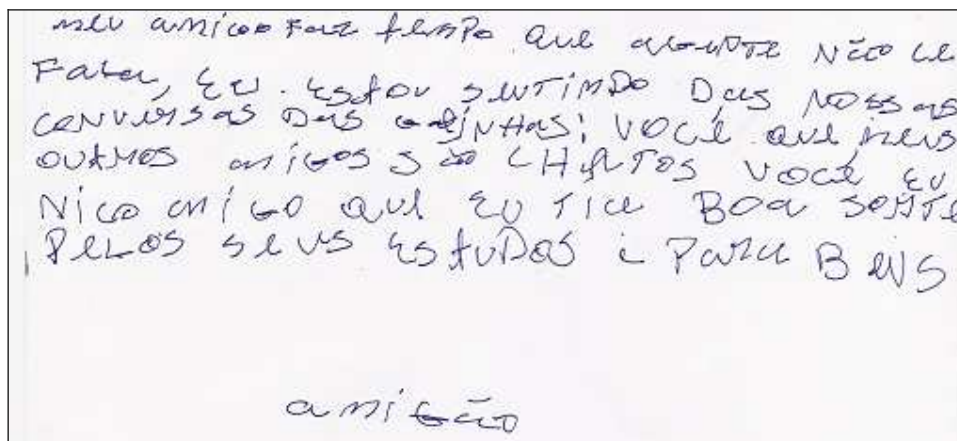 meu amigo Faz tempo que agente Não ce
Fala, Eu. Estou sentindo Das Nossas
conversas Das           ; você que meus
outros amigos são CHATOS você Eu
Nico amigo que Eu Tice Boa sorte
Pelos seus Estudos i Para Bens
amigão